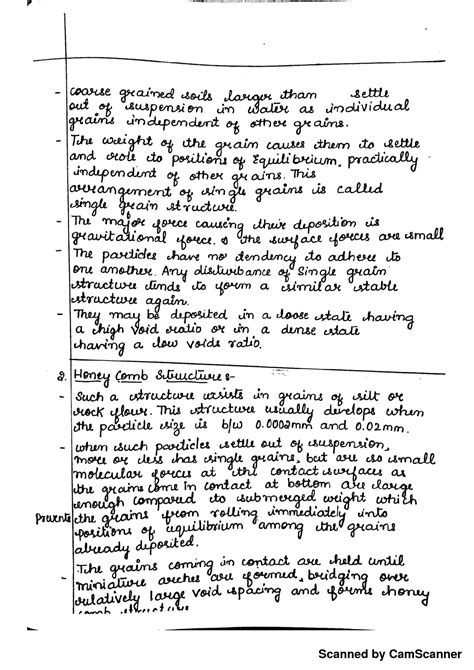 - coarse grained soils larger than settle
out of suspension in water as individual
grains independent of other grains.
- The weight of the grain causes them to settle
and role to positions of Equilibrium, practically
independent of other grains. This
arrangement of single grains is called
single grain structure.
- The major force causing their deposition is
gravitational force. & the surface forces are small
- The particles have no tendency to adhere to
one another. Any disturbance of Single grain
structure tends to form a similar stable
structure again.
- They may be deposited in a loose state having
a high void ratio or in a dense state
having a low voids ratio.
2. Honey Comb Structure :-
- Such a structure exists in grains of silt or
rock flour. This structure usually develops when
the particle size is b/w 0.0002mm and 0.02mm.
- when such particles settle out of suspension,
more or less has single grains, but are so small
molecular forces at the contact surfaces as
the grains come in contact at bottom are large
enough compared to submerged weight which
Prevents the grains from rolling immediately into
positions of equilibrium among the grains
already deposited.
- The grains coming in contact are held until
miniature arches are formed, bridging over
relatively large void spacing and forms honey
comb structure
Scanned by CamScanner